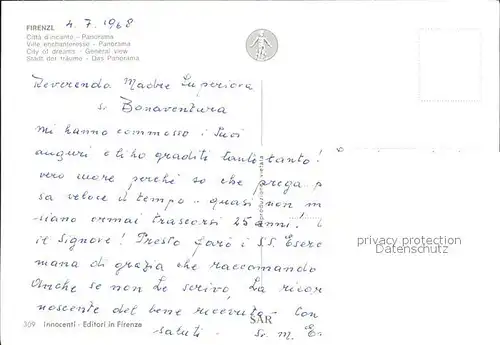 4. 7. 1968
FIRENZE
Città d'incanto - Panorama
Ville enchanteresse - Panorama
City of dreams - General view
Stadt der träume - Das Panorama
Reverenda Madre Superiora
Sr Bonaventura
Mi hanno commosso i Suoi
auguri e li ho graditi tanto tanto!
vero more perché so che prega
sa veloce il tempo - quasi non
siano ormai trascorsi 25 anni!
il Signore! Presto farò i SS. Eser
mana di grazia che raccomando
Anche se non Le scrivo, La ricor
noscente del bene ricevuto - Con
saluti - Sr. M.
riproduzione vietata
privacy protection
Datenschutz
SAR
309 Innocenti - Editori in Firenze